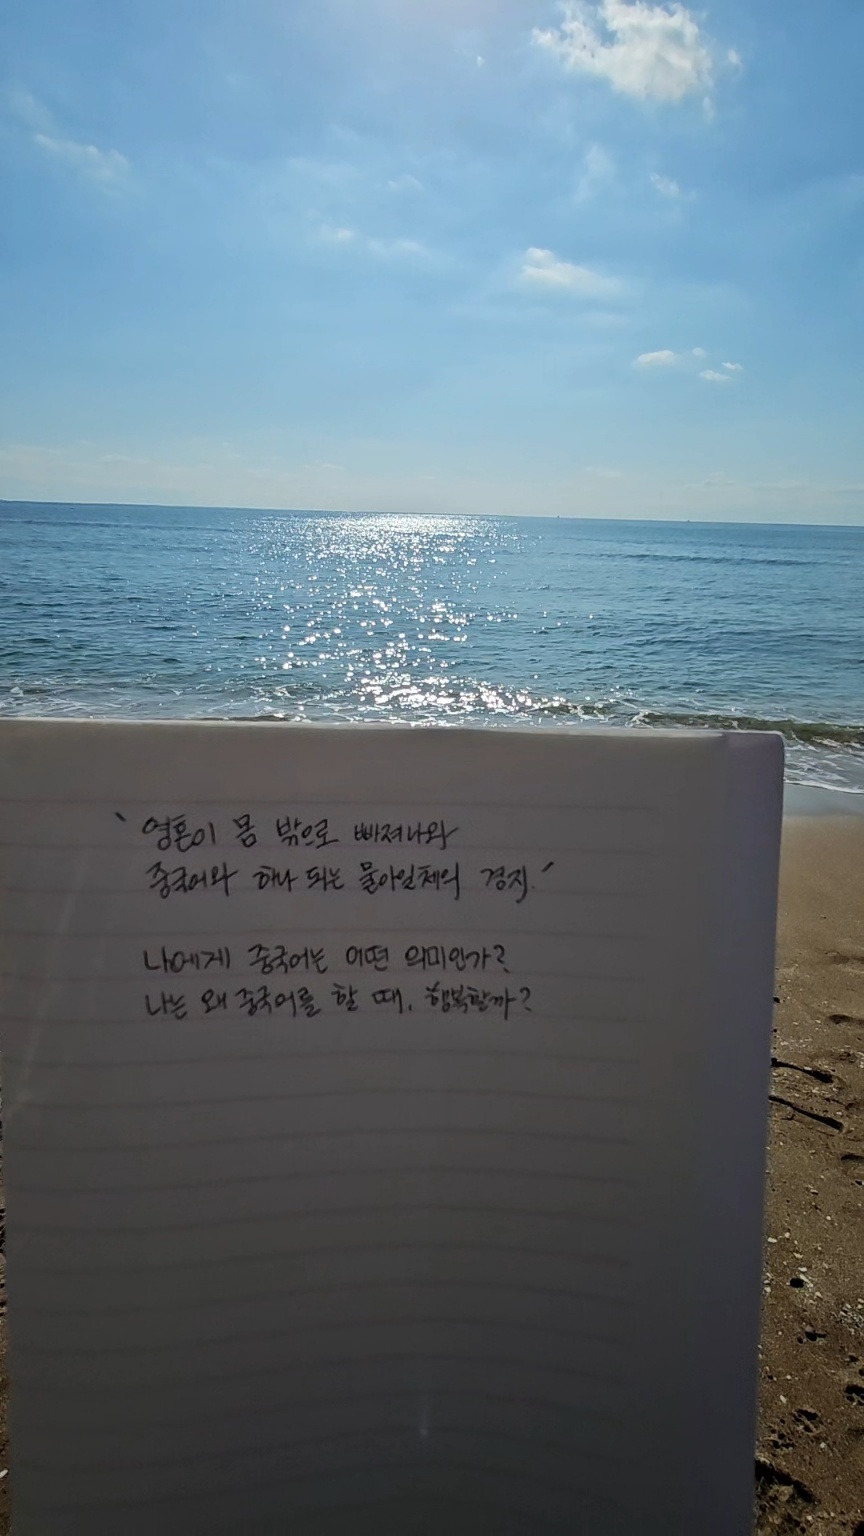 '영혼이 몸 밖으로 빠져나와
중국어와 하나 되는 물아일체의 경지.'
나에게 중국어는 어떤 의미인가?
나는 왜 중국어를 할 때, 행복할까?